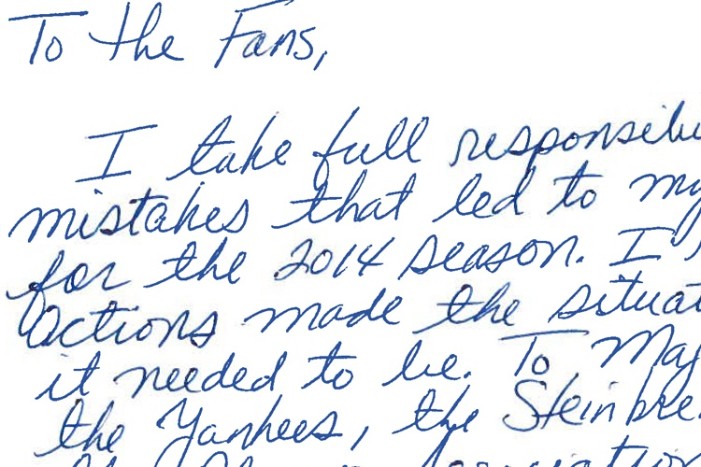 To the Fans,
I take full responsibi
mistakes that led to my
for the 2014 season. I
actions made the situat
it needed to be. To Maj
the Yankees, the Steinbre